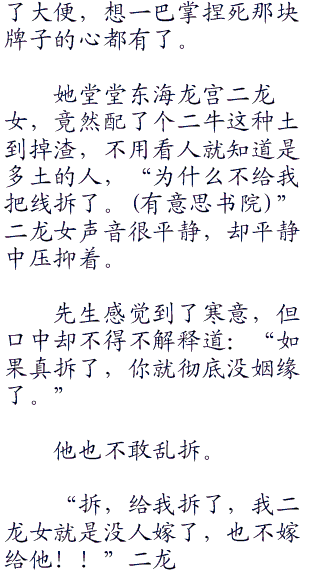 了大便，想一巴掌捏死那块
牌子的心都有了。
她堂堂东海龙宫二龙
女，竟然配了个二牛这种土
到掉渣，不用看人就知道是
多土的人，“为什么不给我
把线拆了。(有意思书院)”
二龙女声音很平静，却平静
中压抑着。
先生感觉到了寒意，但
口中却不得不解释道：“如
果真拆了，你就彻底没姻缘
了。”
他也不敢乱拆。
“拆，给我拆了，我二
龙女就是没人嫁了，也不嫁
给他！！”二龙